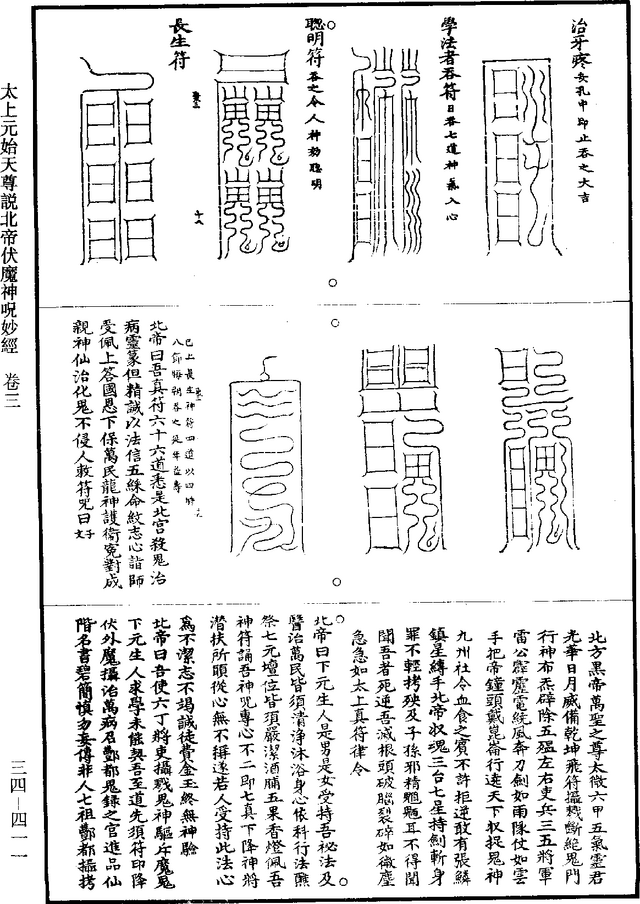 治牙疼安孔中即止吞之大吉
學法者吞符日吞七道神氣入心
聰明符吞之令人神効聰明
長生符
已上長生神符四道以四時
八節每朝吞之延年益壽
北帝曰吾真符六十六道悉是北宮殺鬼治
病靈篆但精誠以法信五綵命紋志心詣師
受佩上答國恩下保萬民龍神護衛冤對成
親神仙治化鬼不侵人救符咒曰
北方黑帝萬聖之尊太微六甲五氣靈君
光華日月威備乾坤飛符攝戮斷絕鬼門
行神布炁辟除五瘟左右吏兵三五將軍
雷公霹靂電繞風奔刀劍如雨隊仗如雲
手把帝鐘頭戴崑崙行遶天下收捉鬼神
九州社令血食之賓不許拒逆敢有張鱗
鎮星縛手北帝收魂三台七星持劍斬身
罪不輕拷殃及子孫邪精魍魎耳不得聞
聞吾者死逆吾滅根頭破腦裂碎如微塵
急急如太上真符律令
北帝曰下元生人是男是女受持吾祕法及
醫治萬民皆須清淨沐浴身心依科行法醮
祭七元壇位皆須嚴潔酒脯五果香燈佩吾
神符誦吾神咒專心不二即七真下降神將
潛扶所願從心無不稱遂若人受持此法心
為不潔志不竭誠徒費金玉終無神驗
北帝曰吾使六丁將吏攝戮鬼神驅斥魔鬼
下元生人求學未能契吾至道先須符印降
伏外魔攝治萬病君酆都鬼錄之官進品仙
階名書碧簡慎勿妄傳非人七祖酆都攝拷
太上元始天尊說北帝伏魔神咒妙經 卷三
三四—四一一